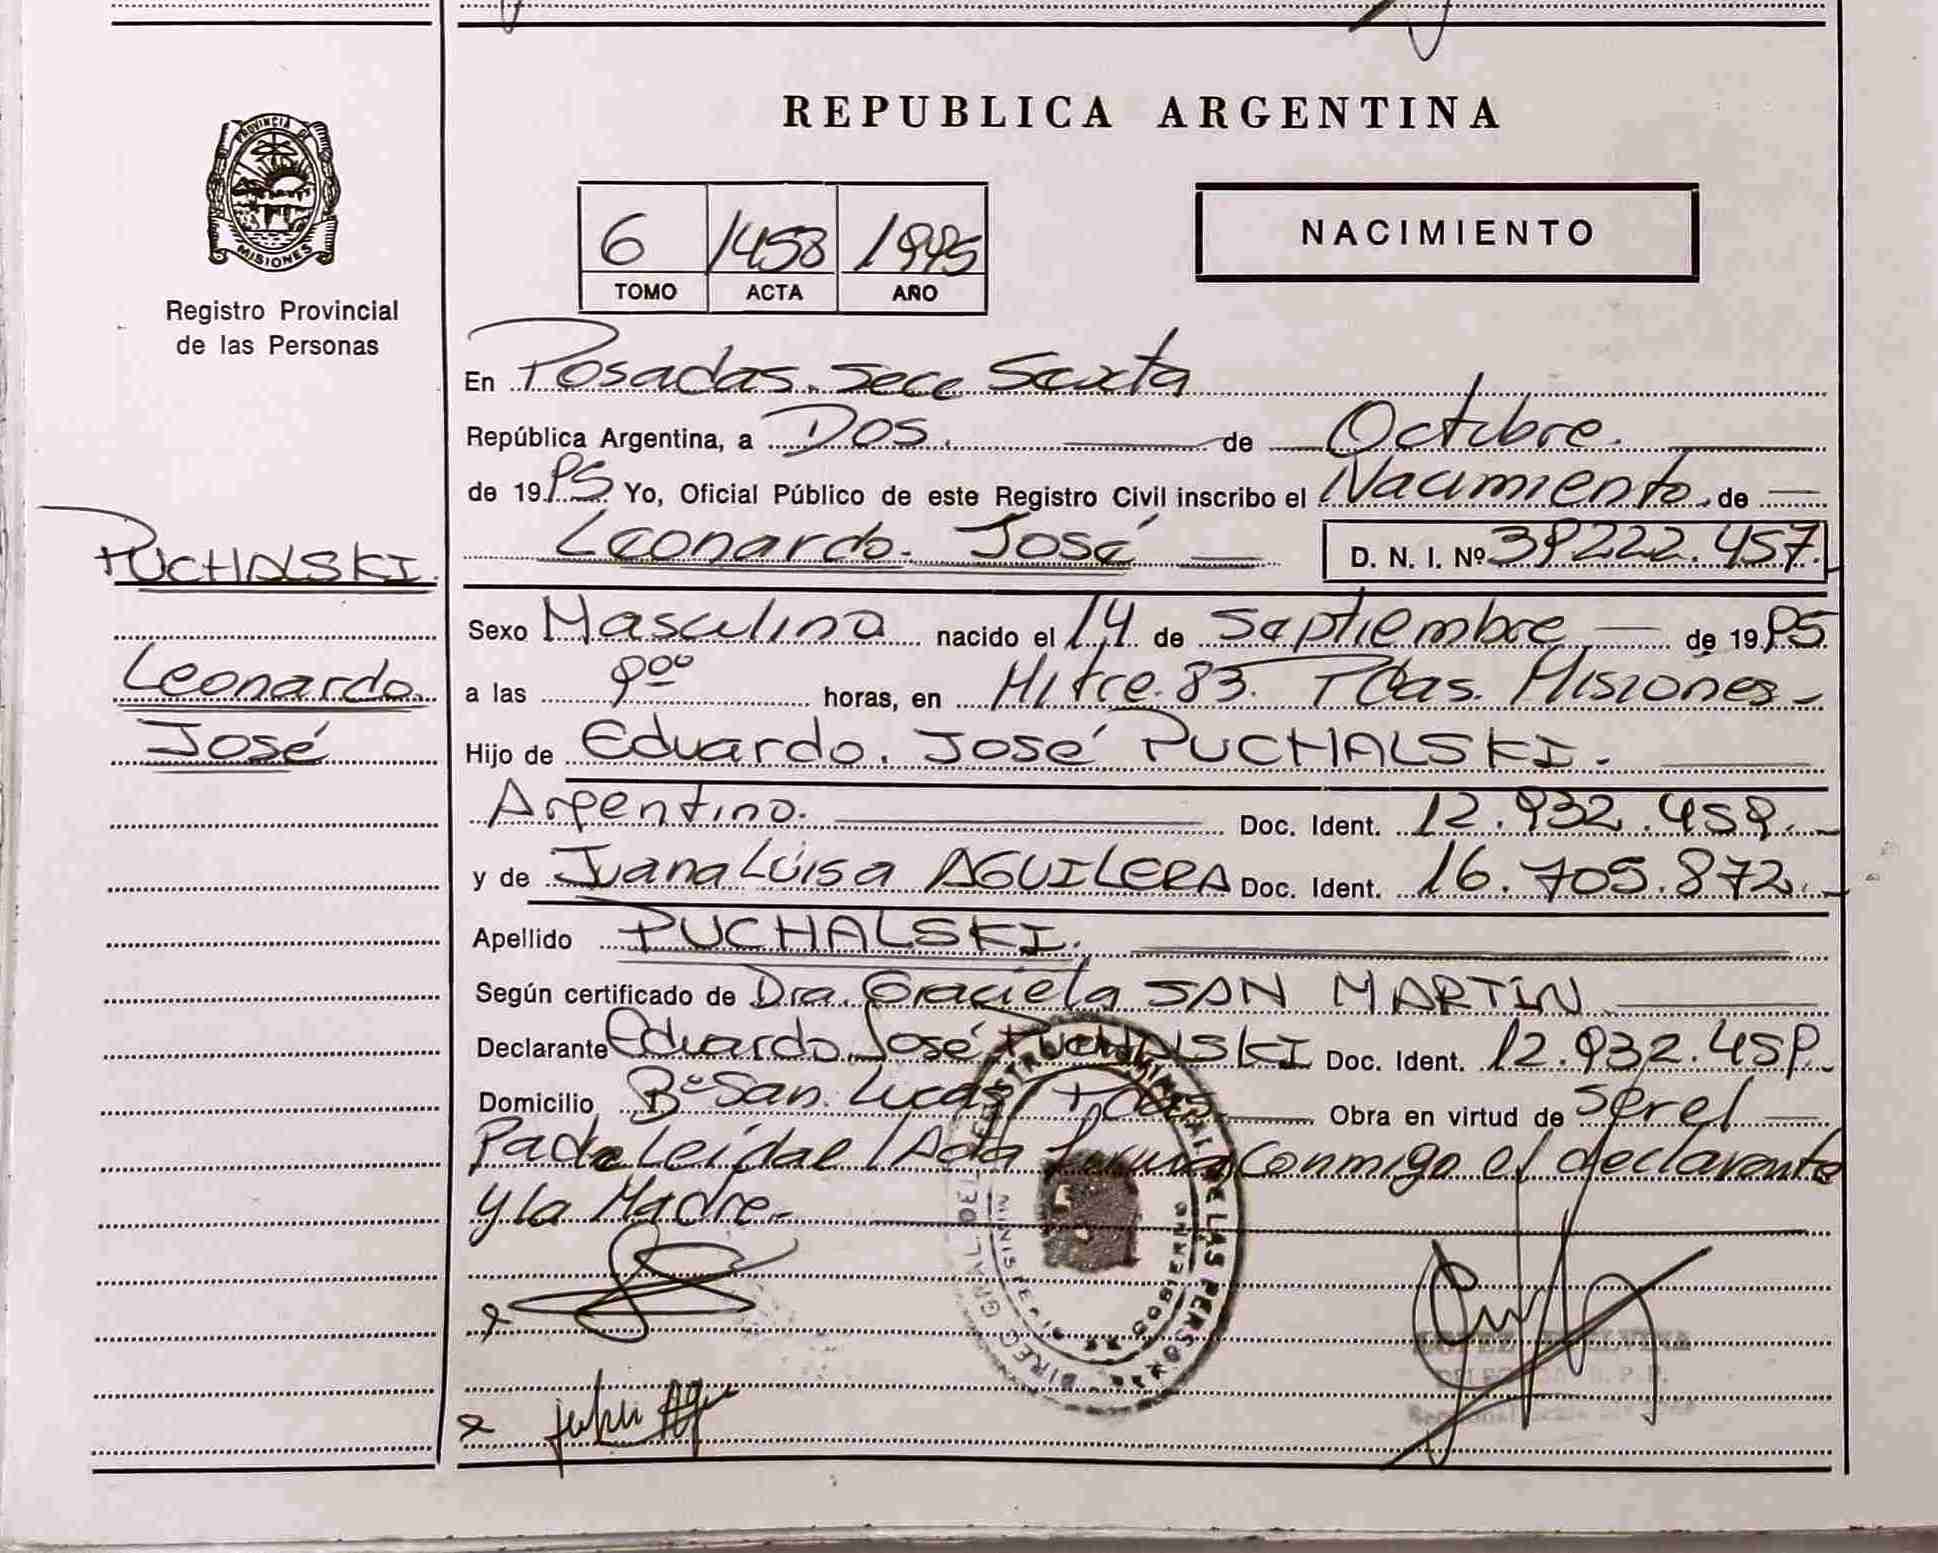 PROVINCIA DE
MISIONES
Registro Provincial
de las Personas
PUCHALSKI.
Leonardo
José
REPUBLICA ARGENTINA
6 1458 1995
TOMO ACTA AÑO
NACIMIENTO
En Posadas. Secc Sexta
República Argentina, a Dos. de Octubre.
de 1995 Yo, Oficial Público de este Registro Civil inscribo el Nacimiento de
Leonardo. José D. N. I. Nº 39222.457.
Sexo Masculino nacido el 14 de Septiembre de 1995
a las 9⁰⁰ horas, en Mitre. 83. Pdas. Misiones
Hijo de Eduardo. José PUCHALSKI.
Argentino. Doc. Ident. 12.932.459.
y de Juana Luisa AGUILERA Doc. Ident. 16.705.872.
Apellido PUCHALSKI.
Según certificado de Dra. Graciela SAN MARTIN
Declarante Eduardo José PUCHALSKI Doc. Ident. 12.932.459.
Domicilio Bº San Lucas Pdas. Obra en virtud de ser el
Padre Leída el Acta firma Conmigo el declarante
y la Madre.